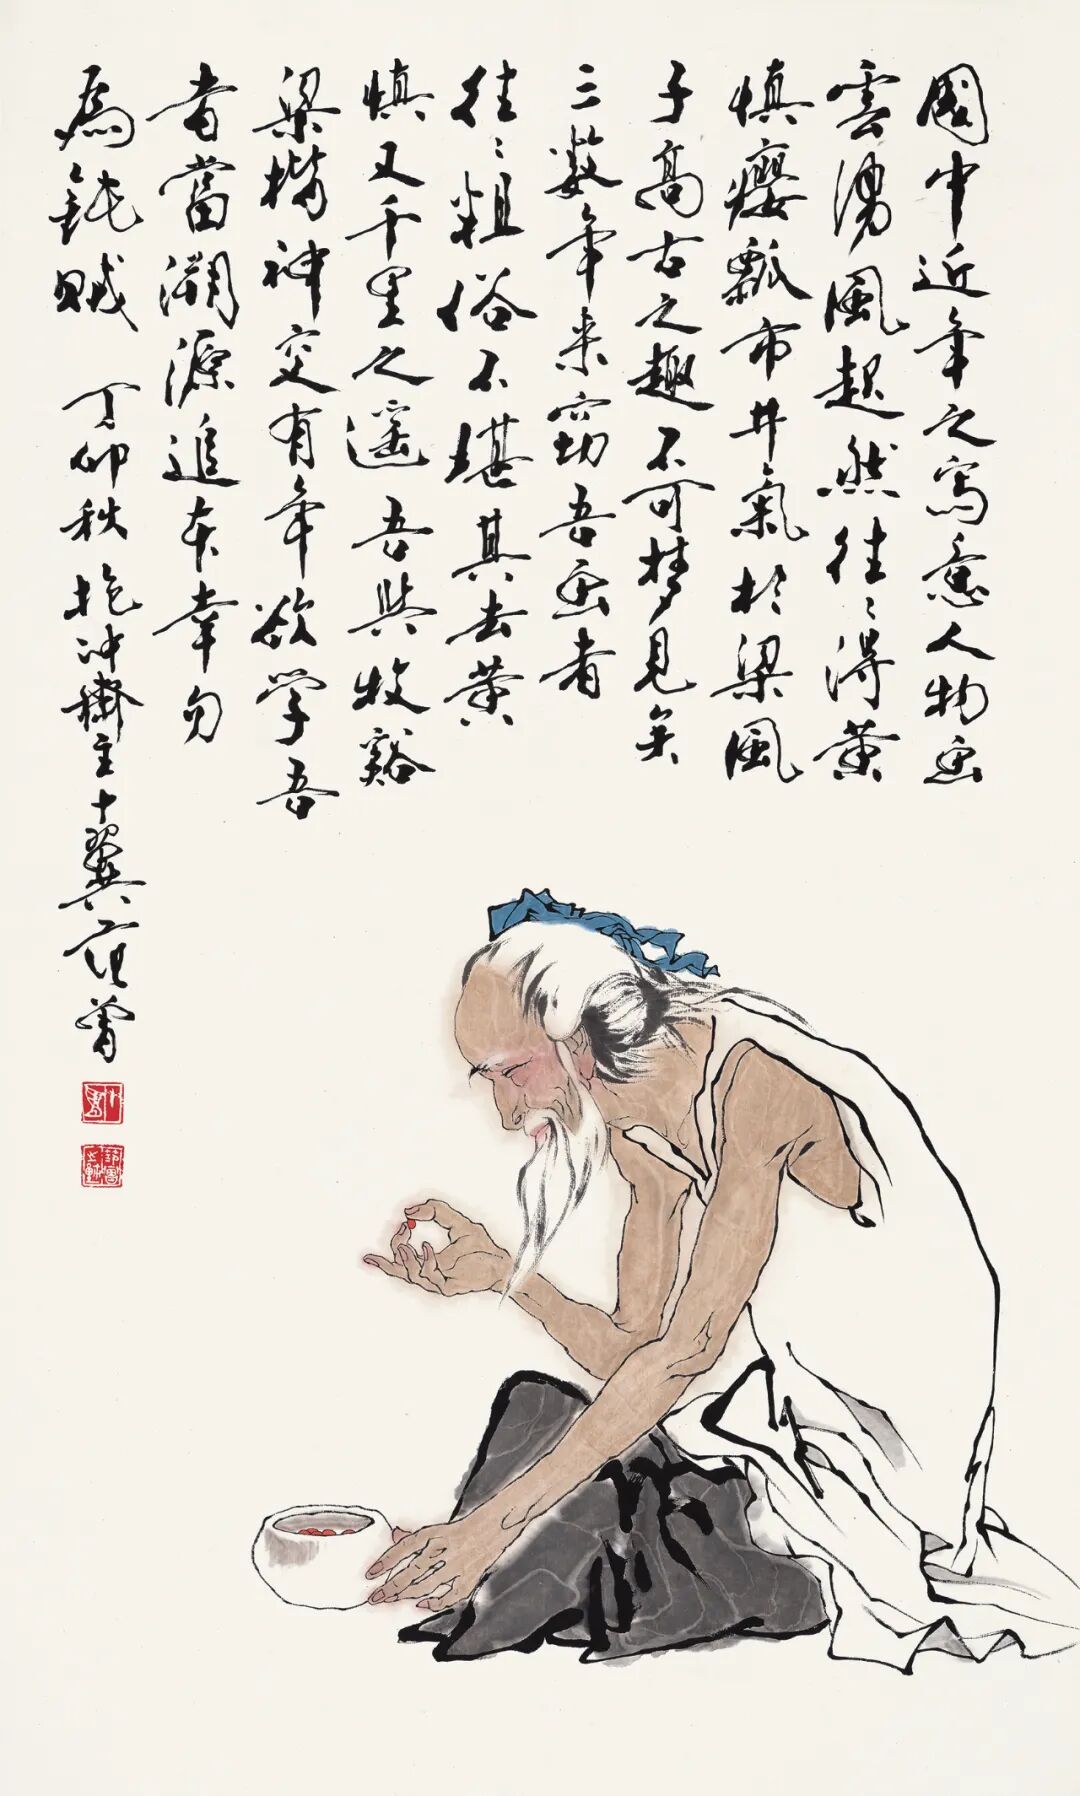 國中近年之寫意人物画
雲湧風起然往〻得黄
慎癭瓢市井氣於梁風
子高古之趣不可梦見矣
三数年来窃吾画者
往〻粗俗不堪其去黄
慎又千里之遥吾與牧谿
梁楷神交有年欲学吾
者當溯源追本幸勿
為鈍賊 丁卯秋抱冲齋主十翼范曾